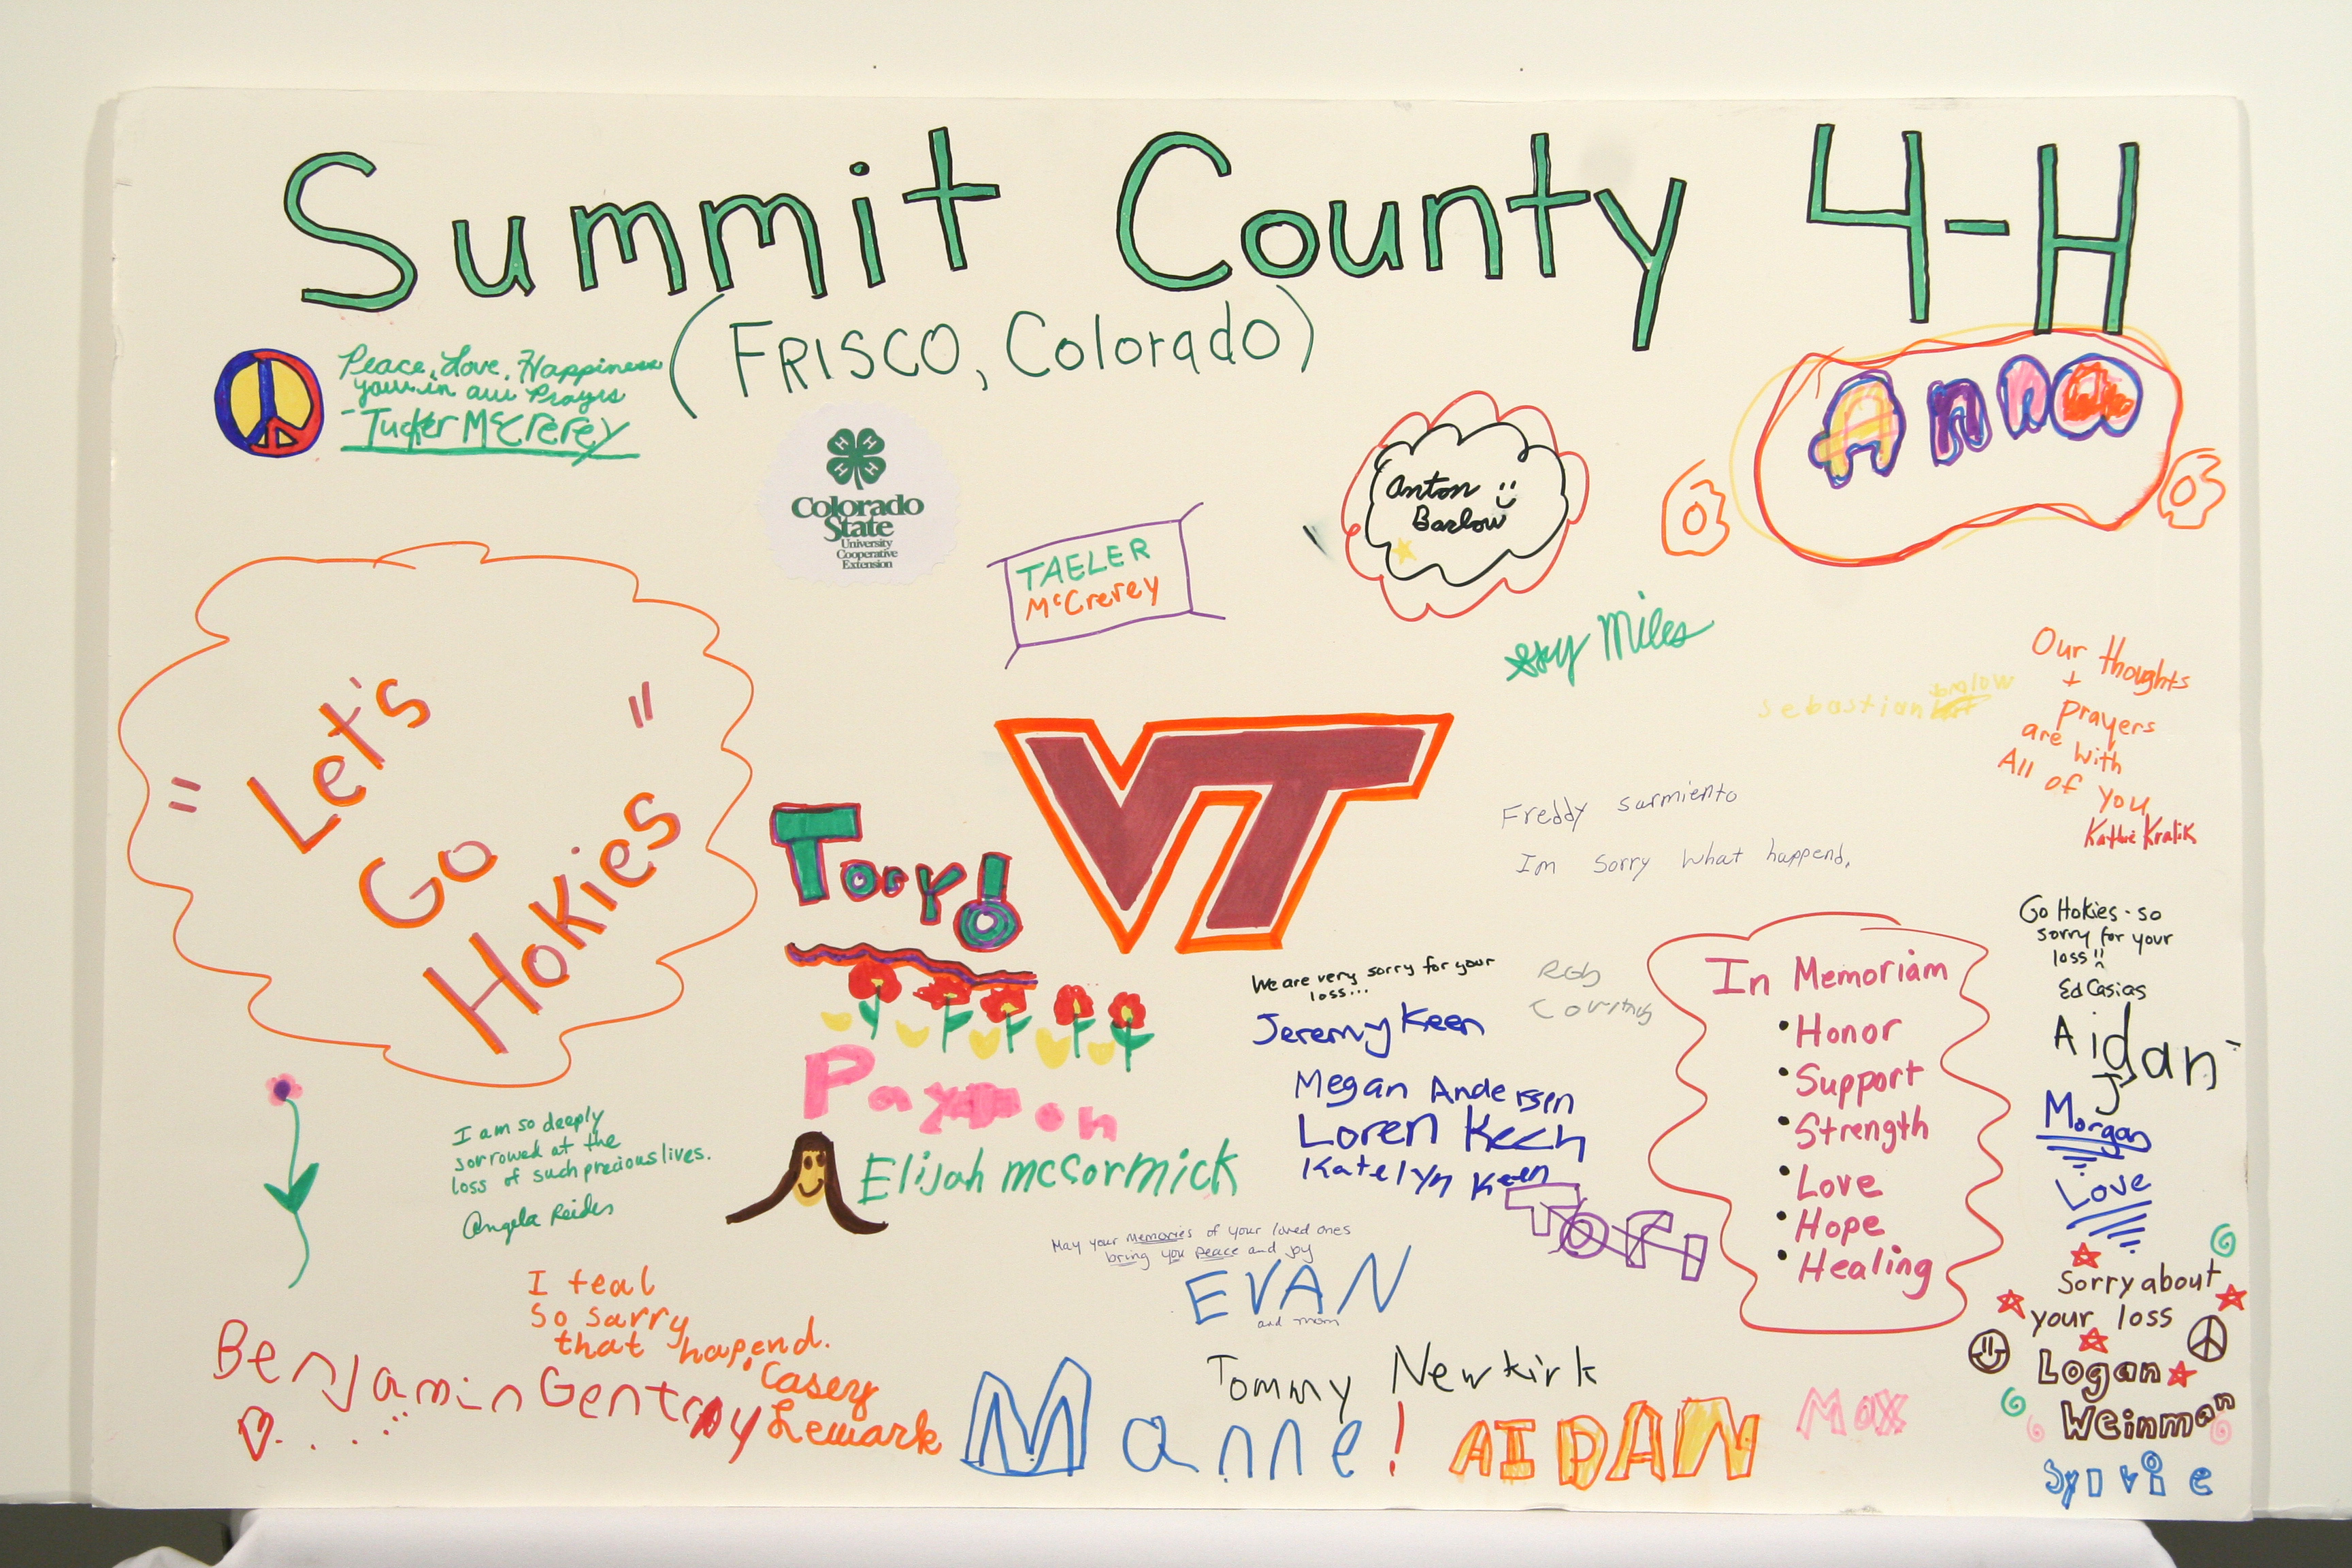 Summit County 4-H
(FRISCO, Colorado)
Peace, Love, Happiness
your in our Prayers
- Tucker McCrerey
H H
H H
Colorado
State
University
Cooperative
Extension
TAELER
McCrerey
Anton
Barlow
Anna
Miles
Sebastian
Our thoughts
+
Prayers
are with
All of you
Kathie Kralik
"Let's
Go
Hokies"
VT
Tory!
Freddy Sarmiento
Im Sorry What happend.
Go Hokies - so
sorry for your
loss!!
Ed Casias
We are very sorry for your
loss...
Jeremy Keen
Megan Andersen
Loren Keen
Katelyn Keen
Rob
In Memoriam
• Honor
• Support
• Strength
• Love
• Hope
• Healing
Aidan
J
Morgan
Love
Paxton
Elijah McCormick
I am so deeply
sorrowed at the
loss of such precious lives.
Angela
May your memories of your loved ones
bring you peace and joy
EVAN
and mom
Tori
Sorry about
your loss
Logan
Weinman
Sylvie
I feal
so sarry
that hapend.
Casey
Lewark
Benjamin Gentry
Tommy Newkirk
Manne!
AIDAN
Max